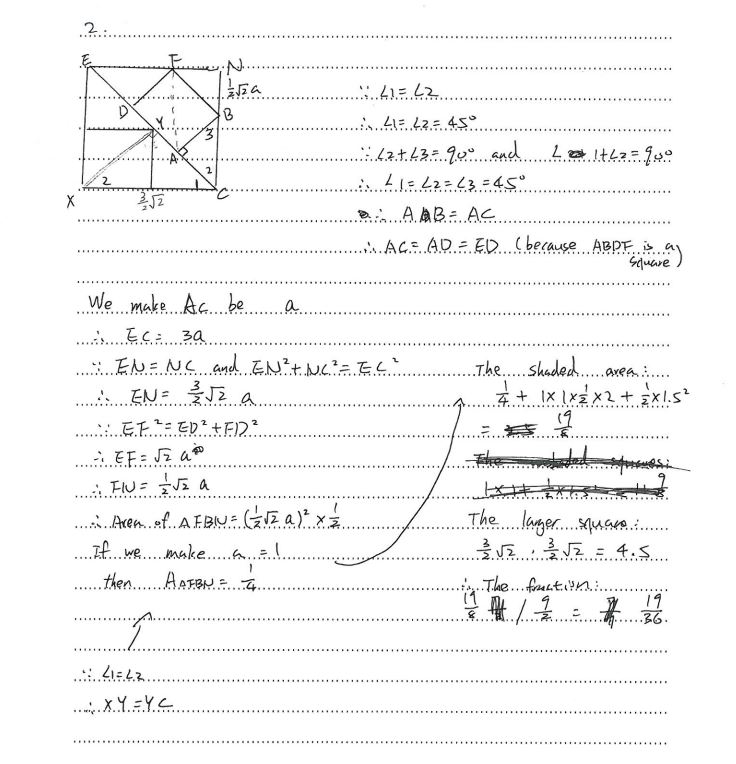 2.
E F N
½√2 a
D B
Y 3
A 2
2 1
X 3/2√2 C
∵ ∠1=∠2
∴ ∠1=∠2=45°
∵ ∠2+∠3=90° and ∠1+∠2=90°
∴ ∠1=∠2=∠3=45°
∴ AB = AC
∴ AC = AD = ED (because ABDF is a square)
We make AC be a
∴ EC = 3a
∵ EN = NC and EN²+NC²=EC²
∴ EN = 3/2 √2 a
∵ EF² = ED² + FD²
∴ EF = √2 a
∴ FN = ½√2 a
∴ Area of △FBN = (½√2 a)² × ½
If we make a = 1
then A△FBN = ¼
∵ ∠1=∠2
∴ XY = YC
The shaded area:
¼ + 1×1×½×2 + ½×1.5²
= 19/8
The larger square:
3/2√2 · 3/2√2 = 4.5
∴ The fraction:
19/8 / 9/2 = 19/36